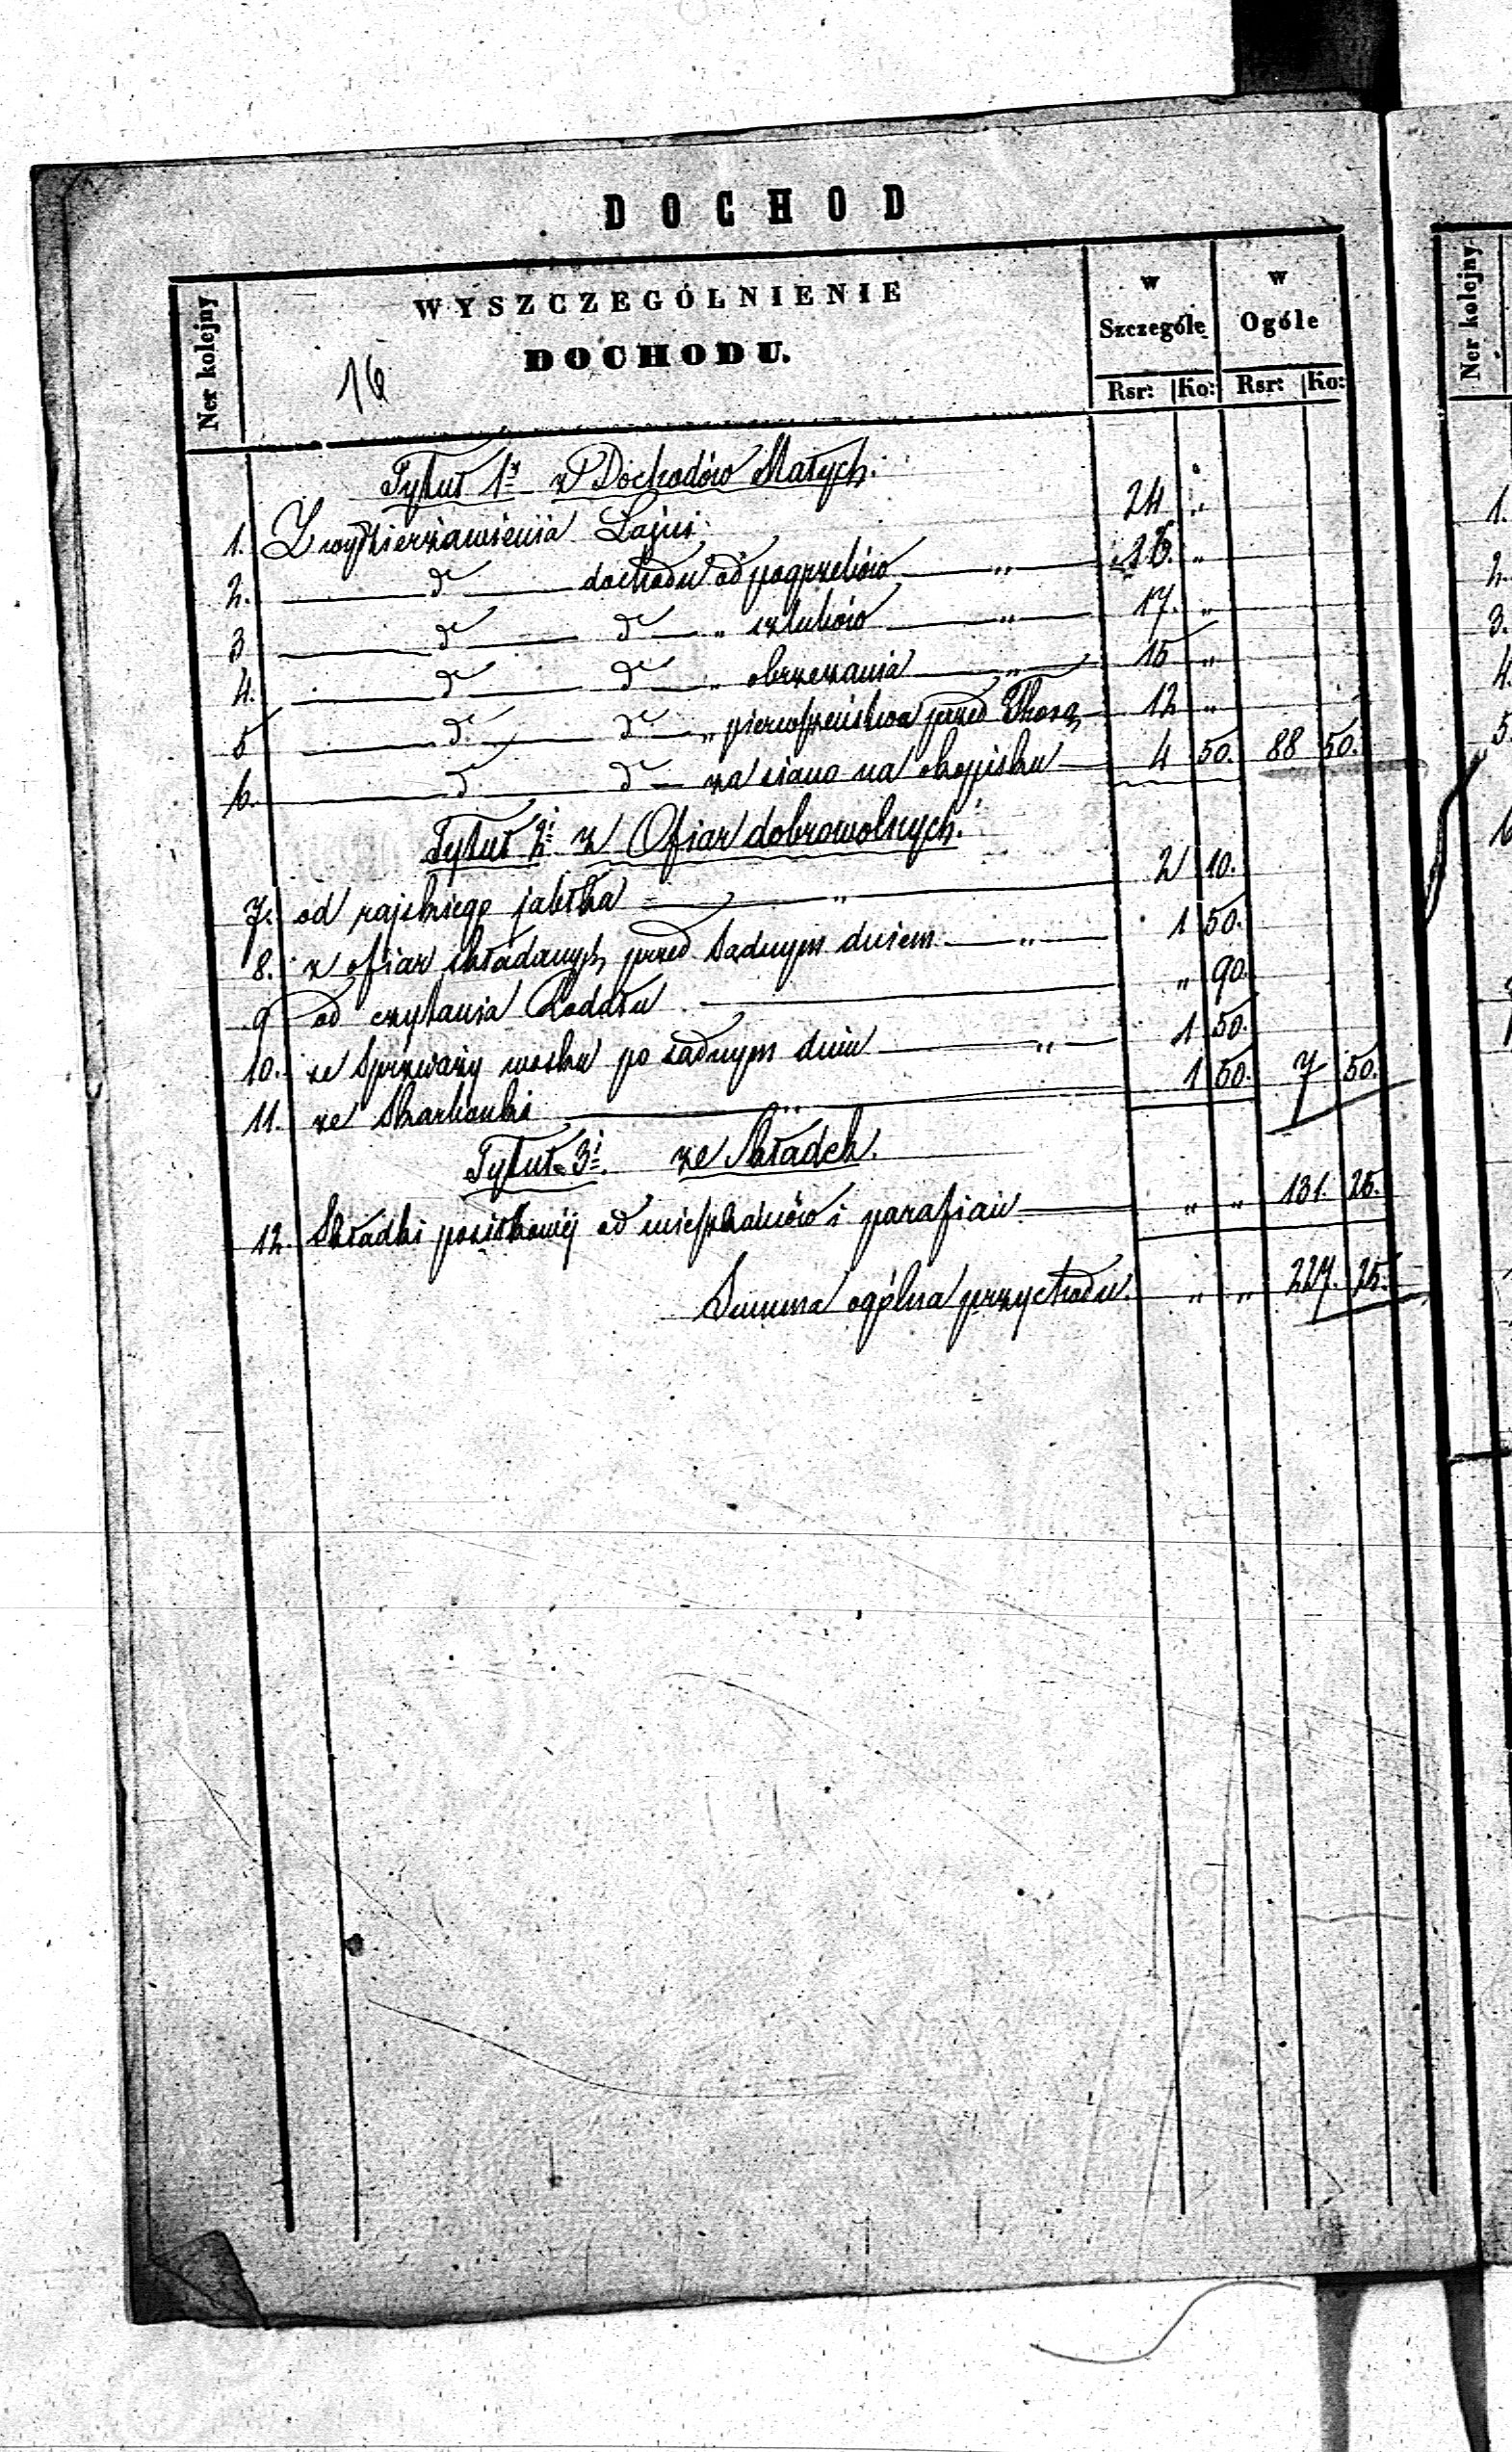 DOCHOD
Ner kolejny
WYSZCZEGÓLNIENIE
DOCHODU.
16
w Szczególe
w Ogóle
Rsr: Ko: Rsr: Ko:
Tytuł 1y z Dochodów Stałych.
1. Z wydzierżawienia Łajni 24 "
2. do dochodu od pogrzebów " 16. "
3 do do " szlubów " 17. "
4. do do " obrzezania " 15 "
5 do do " pierwszeństwa przed Thorą 12 "
6. do do za siano na okopisku 4 50. 88 50.
Tytuł 2i z Ofiar dobrowolnych.
7. od rajskiego jabłka " 2 10.
8. z ofiar składanych przed Sądnym dniem " 1 50.
9 od czytania Rodału " 90.
10. ze Sprzedaży wosku po sądnym dniu " 1 50.
11. ze Skarbonki " 1 50. 7 50.
Tytuł 3i. ze Składek.
12. Składki posiłkowéj od mieszkańców i parafian " " 131. 25.
Summa ogólna przychodu. " " 227. 25.
Ner kolejny
1.
2.
3.
4.
5.